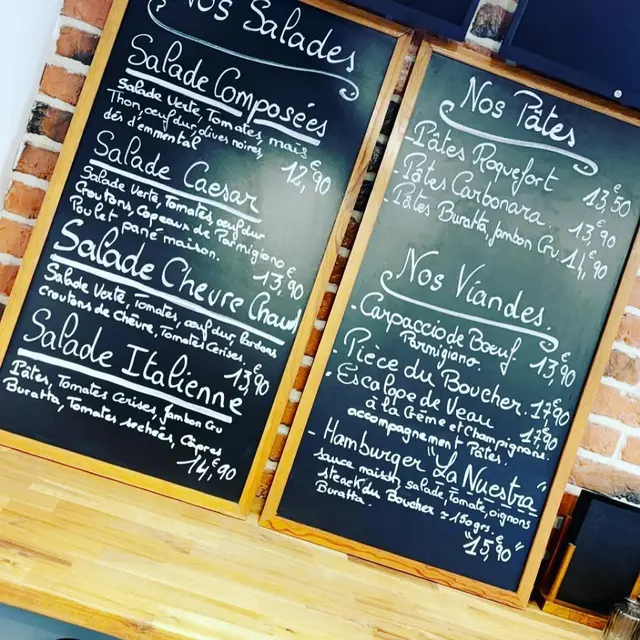 Nos Salades
Salade Composées
Salade Verte, Tomates, maïs
Thon, oeuf dur, olives noires,
dés d'emmental 12,90€
Salade Caesar
Salade Verte, Tomates, oeuf dur
Croutons, Copeaux de Parmigiano
Poulet pané maison. 13,90€
Salade Chèvre Chaud
Salade Verte, Tomates, oeuf dur, lardons
croutons de chèvre, Tomates Cerises. 13,90€
Salade Italienne
Pâtes, Tomates Cerises, Jambon Cru
Buratta, Tomates sechées, Capres
14,90€
Nos Pâtes
- Pâtes Roquefort 13,50€
- Pâtes Carbonara 13,90€
- Pâtes Buratta, Jambon Cru. 14,90€
Nos Viandes.
- Carpaccio de Boeuf.
Parmigiano. 13,90€
- Pièce du Boucher. 17,90€
- Escalope de Veau
à la Crème et Champignons. 17,90€
accompagnement Pâtes.
- Hamburger "La Nuestra"
sauce maison, salade, Tomate, oignons
steack du Boucher = 150grs.
Buratta. "15,90€"